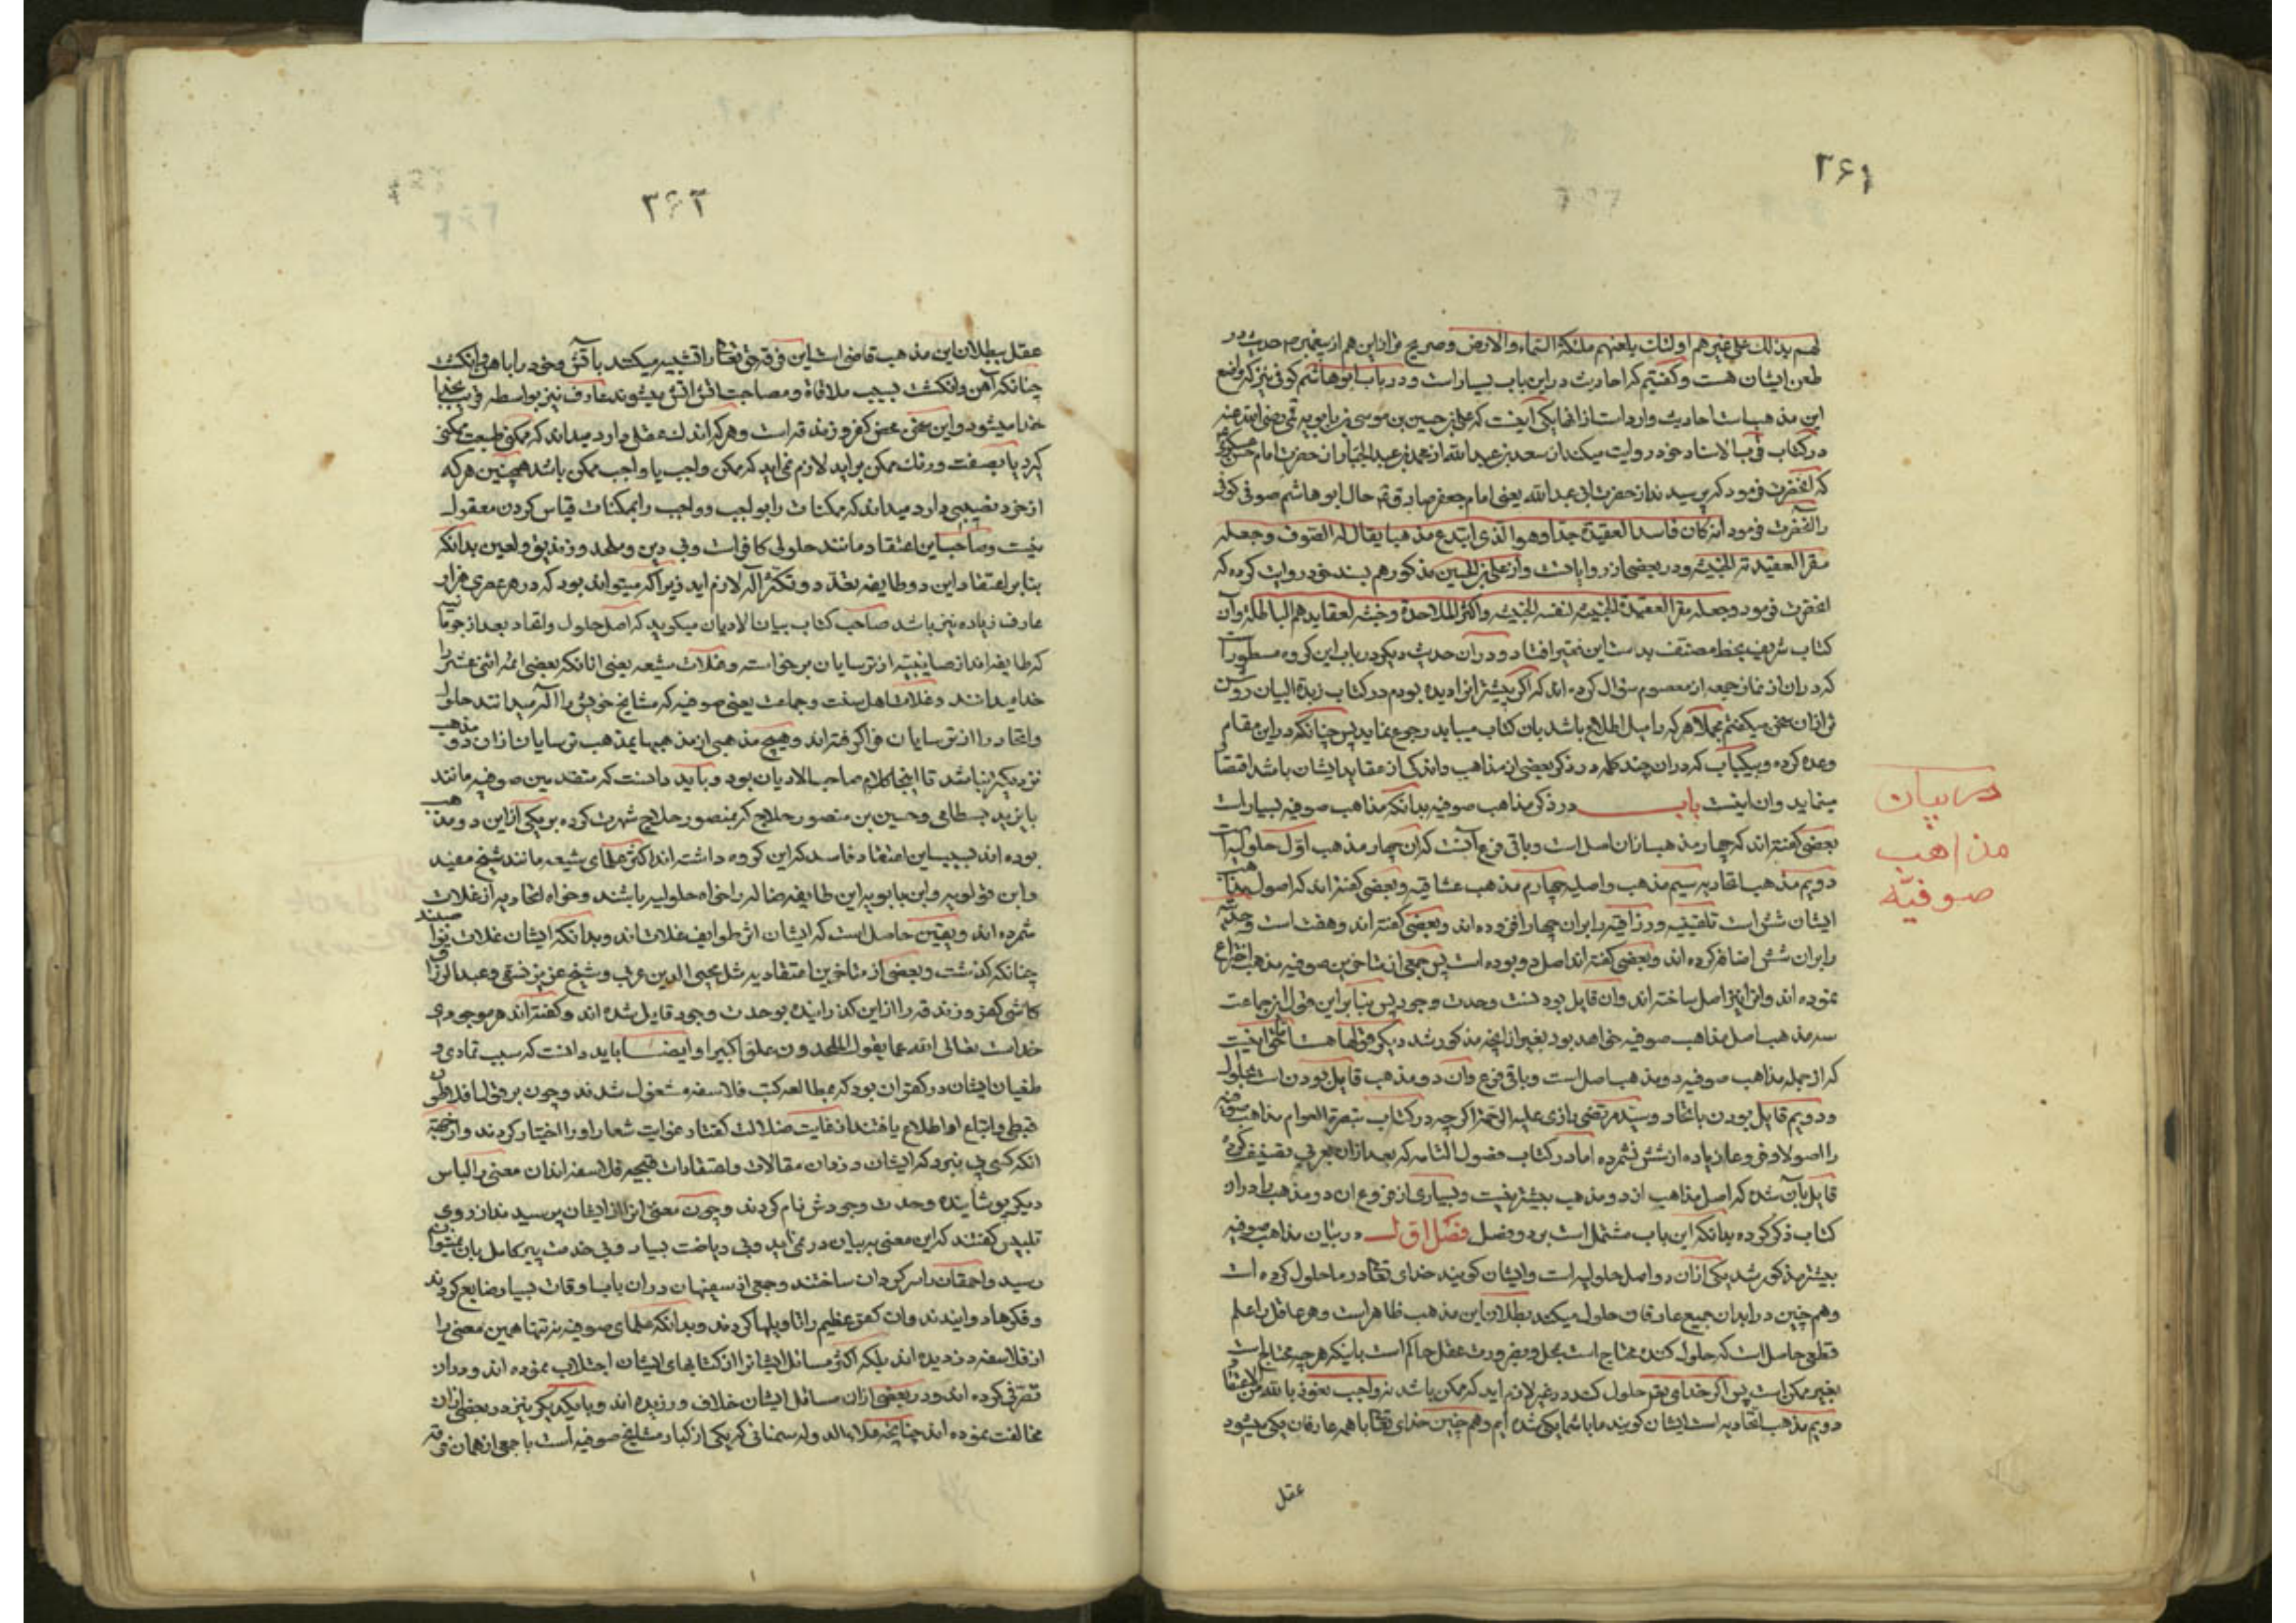 ۳۶۱
لهم بذلك علی غیرهم اولئك یلعنهم ملئکة السماء والارض وصریح تر از این هم از پیغمبر ص حدیث در
طعن ایشان هست و گفتیم که احادیث در این باب بسیار است و در باب ابوهاشم کوفی نیز که واضع
این مذهب است احادیث وارد است از انها یکی آنست که علی بن حسین بن موسی بن بابویه قمی رضی الله عنه
در کتاب قرب الاسناد خود روایت میکند از سعد بن عبدالله از محمد بن عبدالجبار از حضرت امام حسن عسکری
که آنحضرت فرمود که پرسیدند از حضرت ابی عبدالله یعنی امام جعفر صادق ع حال ابوهاشم صوفی کوفی
را آنحضرت فرمود انه کان فاسد العقیدة جدا وهو الذی ابتدع مذهبا یقال له التصوف وجعله
مقرا لعقیدته الخبیثه ودر بعضی از روایات واز علی بن الحسین مذکور هم بسند خود روایت کرده که
انحضرت فرمود وجعله مقرا لعقیدة الخبیثه لنفسه الخبیثه واکثر الملاحدة وخبثه لعقایدهم الباطله وآن
کتاب شریف بخط مصنف بدست این فقیر افتاد ودر آن حدیث دیگر در باب این گروه مسطور است
که در ان از نماز جمعه از معصوم سؤال کرده اند که اگر پیشتر انرا دیده بودم در کتاب زبدة البیان روشن
تر ازان سخن میگفتم مجملا هر که را میل اطلاع باشد بان کتاب میباید رجوع نماید پس چنانکه در این مقام
وعده کرده وبیکباب که دران چند کلمه در ذکر بعضی از مذاهب واندکی از عقاید ایشان باشد اقتصار
مینماید وان اینست باب در ذکر مذاهب صوفیه بدانکه مذاهب صوفیه بسیار است
بعضی گفته اند که چهار مذهب ازان اصل است وباقی فرع آنست که ان چهار مذهب اوّل حلولیه است
دویم مذهب اتحادیه سیم مذهب واصلیه چهارم مذهب عشاقیه وبعضی گفته اند که اصول مذاهب
ایشان شش است تلقینیه ورزاقیه را بران چهار افزوده اند وبعضی گفته اند وهفت است و
را بران شش اضافه کرده اند وبعضی گفته اند اصل دو بوده است پس جمعی از متاخرین صوفیه مذهب اختراع
نموده اند وانرا نیز اصل ساخته اند وان قایل بودنست وحدت وجود پس بنابر این قول این جماعت
سه مذهب اصل مذاهب صوفیه خواهد بود بغیر از انچه مذکور شد دیگر قولها هست اما حق اینست
که از جمله مذاهب صوفیه دو مذهب اصل است وباقی فرع وان دو مذهب قایل بودن است بحلول
ودویم قایل بودن باتحاد وسید مرتضی رازی علیه الرحمه اگرچه در کتاب تبصرة العوام مذاهب صوفیه
را اصولا وفروعا زیاده از شش نشمرده اما در کتاب فصول التامه که بعد ازان بعربی تصنیف کرده
قایل بآن شده که اصل مذاهب از دو مذهب بیشتر نیست وبسیاری از فروع ان دو مذهب را دران
کتاب ذکر کرده بدانکه این باب مشتمل است بر دو فصل فصل اوّل در بیان مذاهب صوفیه
بیشتر مذکور شد یکی ازان دو اصل حلولیه است وایشان گویند خدای تعالی در ما حلول کرده است
وهم چنین در ابدان جمیع عارفان حلول میکند بطلان این مذهب ظاهر است وهر عاقل را علم
قطعی حاصل است که حلول کننده محتاج است بمحل وبضرورت عقل حاکم است باینکه هر چه محتاج است
بغیر ممکن است پس اگر خدای تعالی حلول کند در غیر لازم اید که ممکن باشد نه واجب نعوذ بالله من الاعتقاد
دویم مذهب اتحادیه است ایشان گویند ما با شما یکی شده ایم وهم چنین خدای تعالی با همه عارفان یکی میشود
عقل
در بیان
مذاهب
صوفیّه
۳۶۲
عقل ببطلان این مذهب قاضی است این فرقه حق تعالی را تشبیه میکنند باتش وخود را باهن وانگشت
چنانکه آهن وانگشت بسبب ملاقاة ومصاحبت اتش اتش میشوند عارف نیز بواسطه قرب بخدا
خدا میشود واین سخن محض کفر وزندقه است وهر که اندك عقلی دارد میداند که ممکن طبیعت ممکن
گیرد یا بصفت ورنك ممکن براید لازم نمی اید که ممکن واجب یا واجب ممکن باشد همچنین هر که
از خرد نصیبی دارد میداند که ممکنات را بواجب وواجب را بممکنات قیاس کردن معقول
نیست وصاحب این اعتقاد مانند حلولی کافر است وبی دین وملحد وزندیق ولعین بدانکه
بنابر اعتقاد این دو طایفه تعدد وتکثر اله لازم اید زیرا که میتواند بود که در هر عصری هزار
عارف زیاده نیز باشد صاحب کتاب بیان الادیان میگوید که اصل حلول واتحاد بعد از
که طایفه اند از صابئیه از ترسایان برخواسته وغلات شیعه یعنی انانکه بعضی ائمه اثنی عشر را
خدا میدانند وغلات اهل سنت وجماعت یعنی صوفیه که مشایخ خویش را اله میدانند حلول
واتحاد را از ترسایان فرا گرفته اند وهیچ مذهبی از مذهبها بمذهب ترسایان ازان دو مذهب
نزدیکتر نباشد تا اینجا کلام صاحب الادیان بود وباید دانست که متقدمین صوفیه مانند
بایزید بسطامی وحسین بن منصور حلاج که بمنصور حلاج شهرت کرده بر یکی از این دو مذهب
بوده اند بسبب این اعتقاد فاسد که این گروه داشته اند اکثر علمای شیعه مانند شیخ مفید
وابن قولویه وابن بابویه این طایفه ضاله را خواه حلولیه باشند وخواه اتحادیه از غلات
شمرده اند وبیقین حاصل است که ایشان اشر طوایف غلات اند وبدانکه ایشان غلات
چنانکه گذشت وبعضی از متاخرین اتحادیه مثل محیی الدین عربی وشیخ عزیز نسفی وعبدالرزاق
کاشی کفر وزندقه را از این گذرانیده بوحدت وجود قایل شده اند وگفته اند هر موجودی
خداست تعالی الله عما یقول الملحدون علوا کبیرا وایضا باید دانست که سبب تمادی و
طغیان ایشان در کفر ان بود که بمطالعه کتب فلاسفه مشغول شدند وچون بر قول افلاطون
قبطی واتباع او اطلاع یافتند از غایت ضلالت گفتار غوایت شعار او را اختیار کردند واز جهة
انکه کسی پی نبرد که ایشان دزدان مقالات واعتقادات قبیحه فلاسفه اندان معنی را لباس
دیگر پوشانیده وحدت وجودش نام کردند وچون معنی انرا از ایشان پرسیدند از روی
تلبیس گفتند که این معنی به بیان در نمی اید وبی ریاضت بسیار وبی خدمت پیر کامل بان نمیتوان
رسید واحمقان را سرگردان ساختند وجمعی از سفیهان دران باب اوقات بسیار ضایع کردند
وفکرها دوانیدند وان کفر عظیم را تاویلها کردند وبدانکه علمای صوفیه نه تنها همین معنی را
از فلاسفه دزدیده اند بلکه اکثر مسائل ایشانرا از کتابهای ایشان اجتلاب نموده اند ودران
تصرفی کرده اند ودر بعضی ازان مسائل ایشان خلاف ورزیده اند وبا یکدیگر نیز در بعضی ازان
مخالفت نموده اند چنانچه علاءالدوله سمنانی که یکی از کبار مشایخ صوفیه است با جمعی از همان فرقه